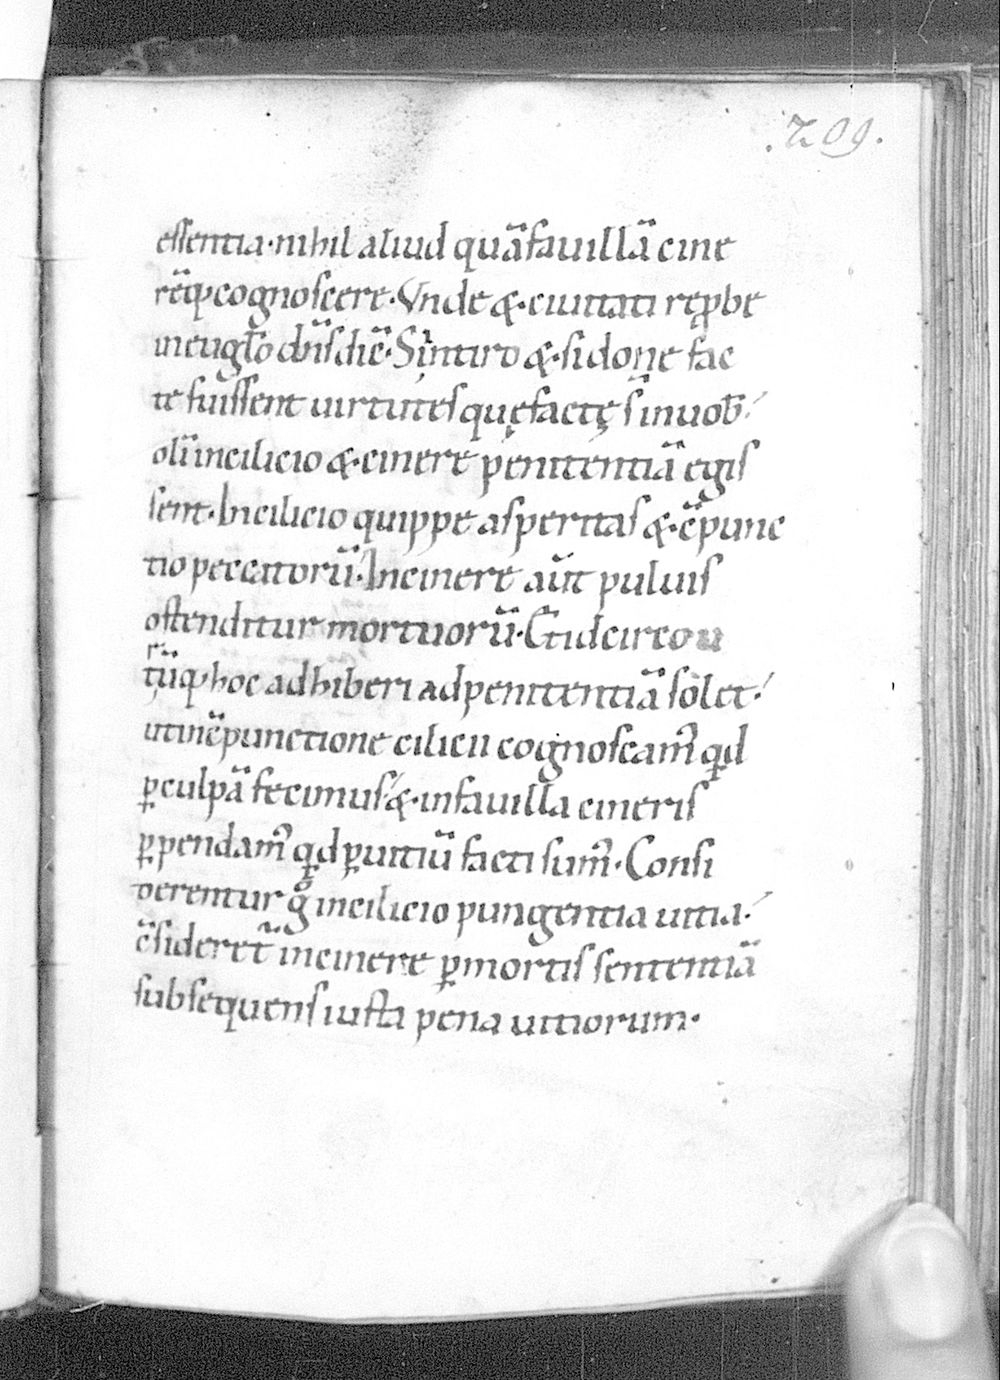 .209.
essentia·nihil aliud quā favillā cine
rēq; cognoscere·Vnde &·ciuitati rep̱be
in eugl̄o dn̄s dic̄·Si in tiro &·sidone fac
te fuissent uirtutes quę factę s̄ in uob̄·
olī in cilicio &·cinere penitentiā egis
sent·In cilicio quippe asperitas &·c̄punc
tio peccatorū·In cinere aūt puluis
ostenditur mortuorū·Et idcirco u
trūq; hoc adhiberi ad penitentiā solet·
ut in c̄punctione cilicii cognoscam᾽ qd
ꝑ culpā fecimus·&·in favilla cineris
ꝑpendam᾽ qd ꝑ uitiū facti sum᾽·Consi
derentur g̊ in cilicio pungentia uitia·
c̄sideret᷑ in cinere ꝑ mortis sententiā
subsequens iusta pena uitiorum·